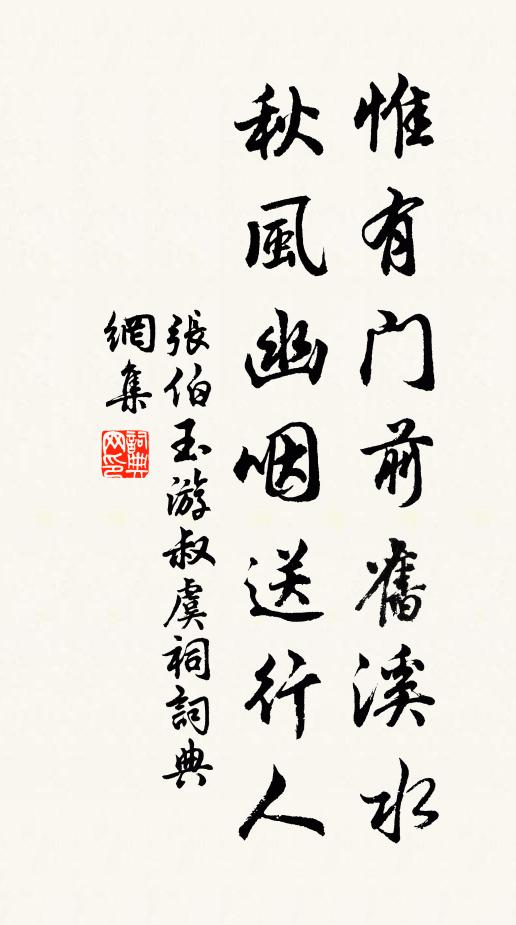 惟有門前舊溪水
秋風幽咽送行人
張伯玉游叔虞祠詞典
網集
詞典
网印